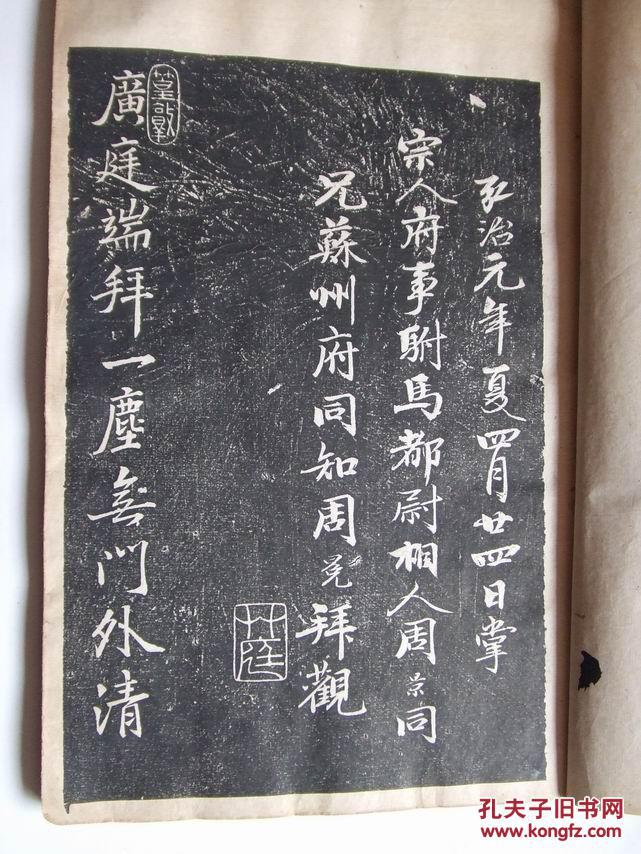 弘治元年夏四月廿四日掌
宗人府事駙馬都尉相人周景同
兄蘇州府同知周冕拜觀
廣庭端拜一塵無門外清
孔夫子旧书网
www.kongfz.com